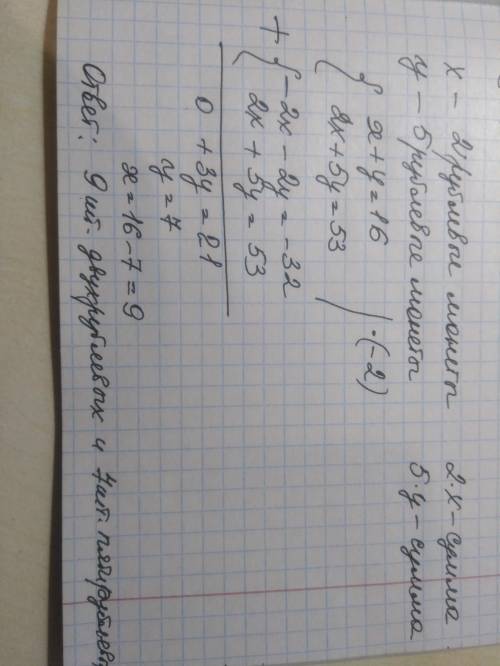 x – 2 рублевые монеты 2·x – сумма
y – 5 рублевые монеты 5·y – сумма
{ x + y = 16 | ·(-2)
2x + 5y = 53
+ { -2x - 2y = -32
2x + 5y = 53
0 + 3y = 21
y = 7
x = 16 - 7 = 9
Ответ: 9 шт. двухрублевых и 7 шт. пятирублев